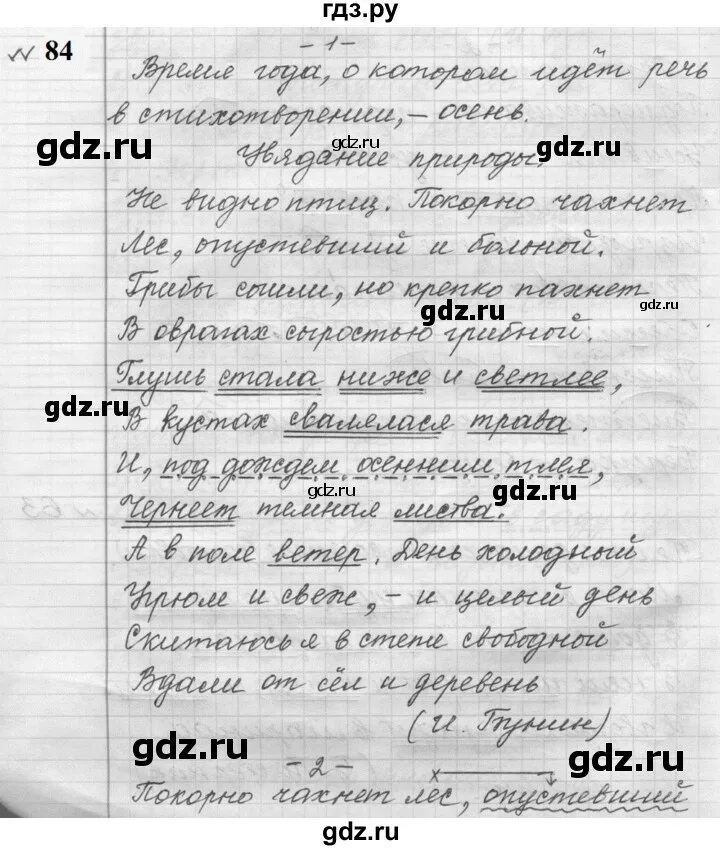 гдз.ру
№ 84
- 1 -
Время года, о котором идёт речь
в стихотворении, – осень.
gdz.ru
gdz.ru
gdz.ru
Увядание природы.
Не видно птиц. Покорно чахнет
gdz.ru
gdz.ru
Лес, опустевший и больной.
Грибы сошли, но крепко пахнет
gdz.ru
gdz.ru
В оврагах сыростью грибной.
Глушь стала ниже и светлее,
gdz.ru
В кустах свалялася трава.
И, под дождем осенним тлея,
gdz.ru
gdz.ru
Чернеет темная листва.
А в поле ветер. День холодный
gdz.ru
Угрюм и свеж, – и целый день
gdz.ru
Скитаюсь я в степи свободной
Вдали от сёл и деревень
(И. Бунин)
gdz.ru
gdz.ru
- 2 -
Покорно чахнет лес, опустевший
gdz.ru
gdz.ru